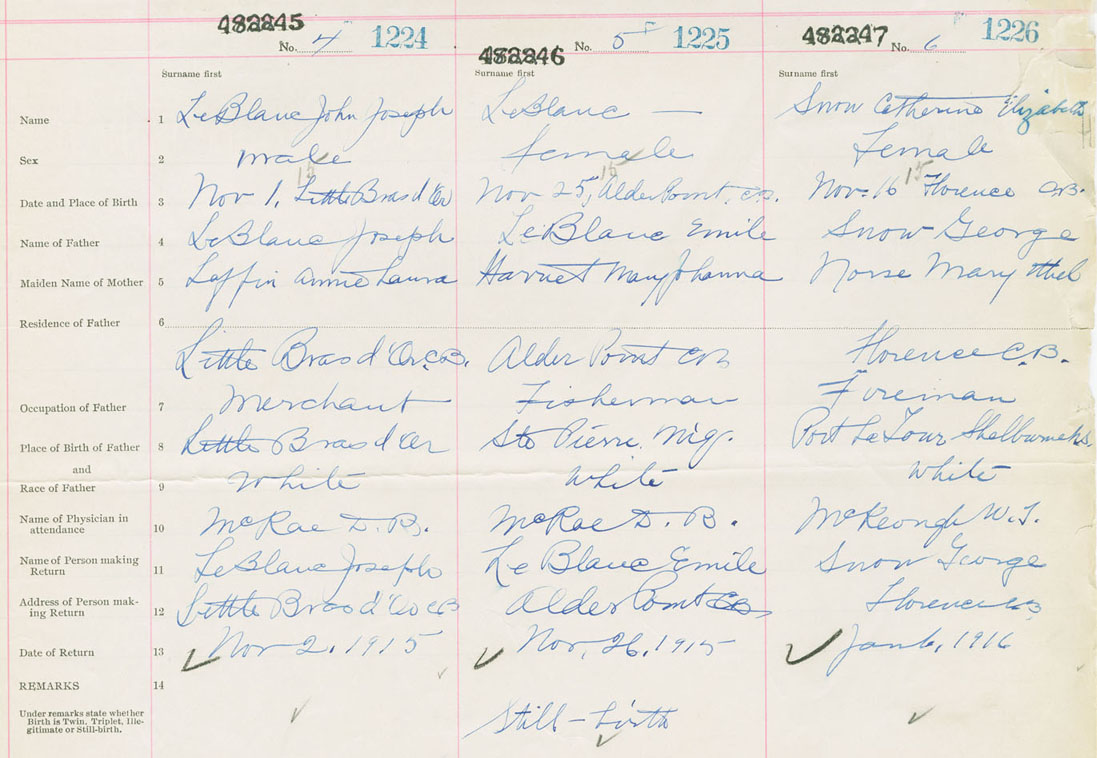 482245 482246 482247
No. 4 1224 No. 5 1225 No. 6 1226
Surname first Surname first Surname first
Name 1 LeBlanc John Joseph LeBlanc — Snow Catherine Elizabeth
Sex 2 male female Female
15 15 15
Date and Place of Birth 3 Nov 1, Little Bras d'Or Nov 25, Alder Point, C.B. Nov. 16 Florence C.B.
Name of Father 4 LeBlanc Joseph LeBlanc Emile Snow George
Maiden Name of Mother 5 Laffin Annie Laura Mary Johanna Mary Ethel
Residence of Father 6
Little Bras d'Or C.B. Alder Point CB Florence C.B.
Occupation of Father 7 Merchant Fisherman Fireman
Place of Birth of Father 8 Little Bras d'Or St Pierre Miq. Port La Tour Shelburne
and
Race of Father 9 White White White
Name of Physician in
attendance 10 McRae D. B. McRae D. B. McKeough W. J.
Name of Person making
Return 11 LeBlanc Joseph Le Blanc Emile Snow George
Address of Person mak-
ing Return 12 Little Bras d'Or CB Alder Point CB Florence CB
Date of Return 13 Nov 2, 1915 Nov, 26, 1915 Jan 6, 1916
REMARKS 14
Under remarks state whether
Birth is Twin, Triplet, Ille-
gitimate or Still-birth.
Still-birth